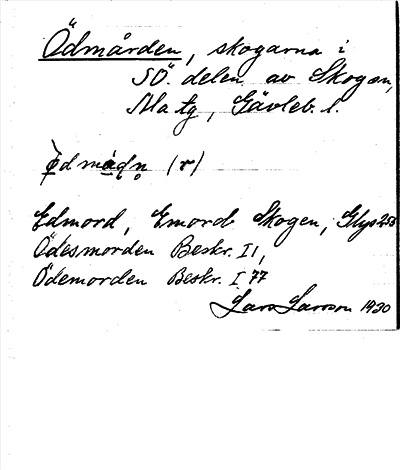 Ödmården, skogarna i
SÖ. delen av Skogen,
Ala tg, Gävleb. l.
ødmådn (r)
Edmord, Emord Skogen, Glys 253
Ödesmorden Beskr. I 1,
Ödemorden Beskr. I 77
Lars Larsson 1930